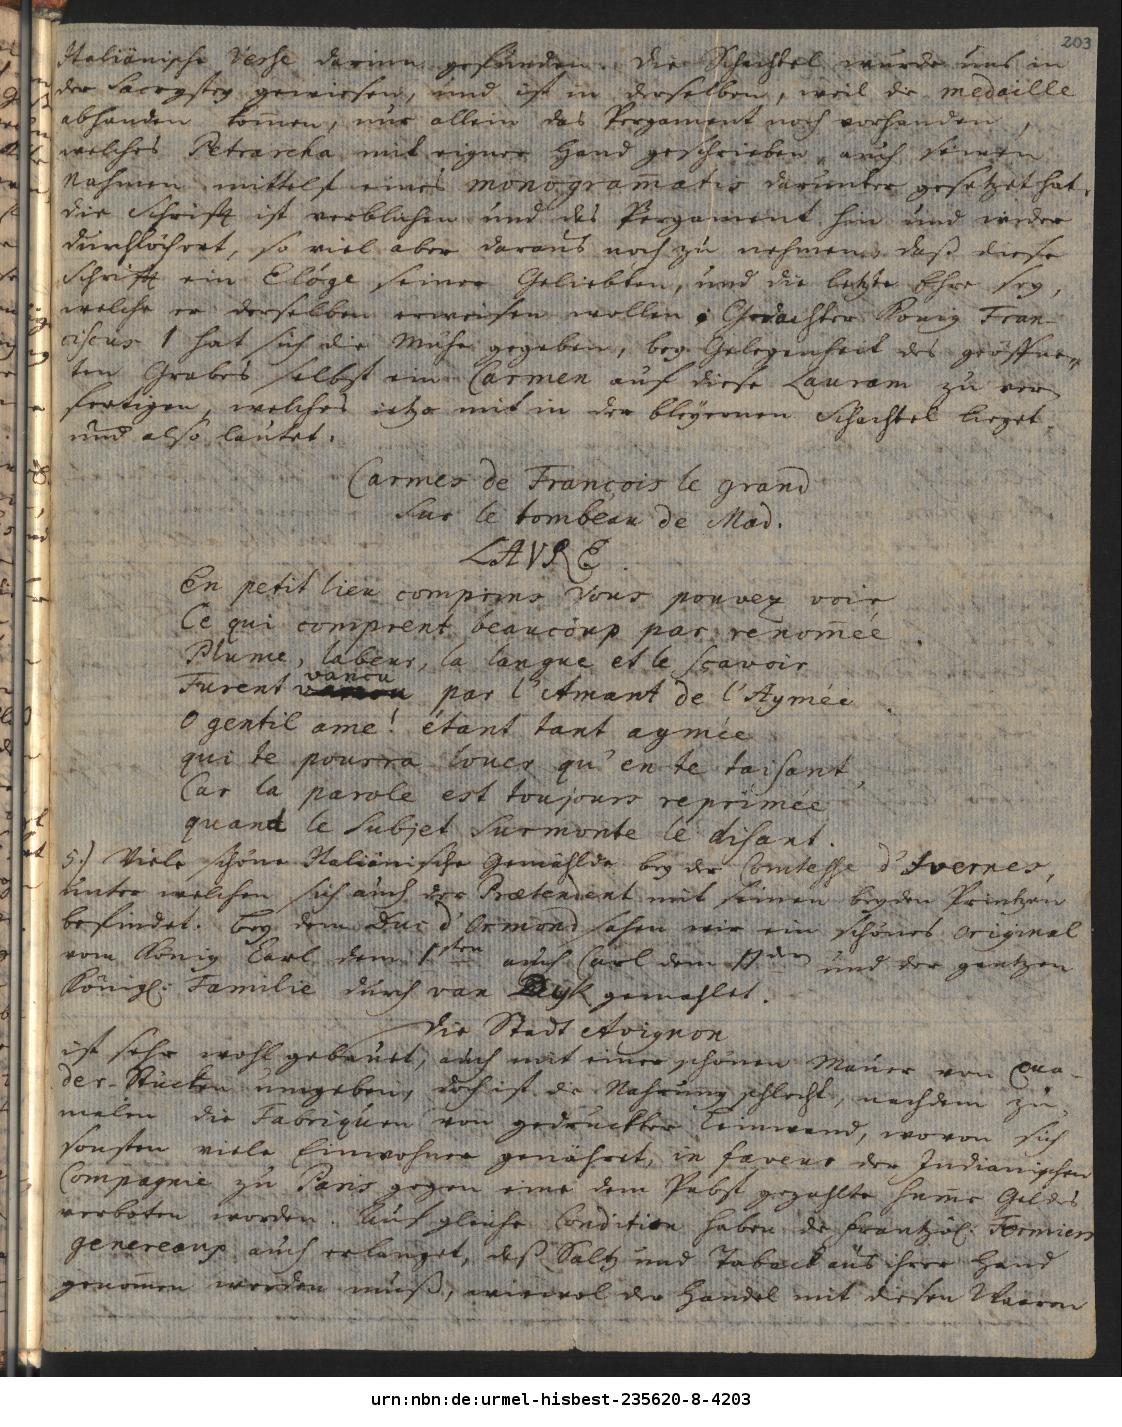 203
Italiänische Verse darinn gefunden. Die Schachtel wurde uns in
der Sacrystey gewiesen, und ist in derselben, weil die medaille
abhanden kom̅en, nur allein das Pergament noch vorhanden,
welches Petrarcha mit eigner Hand geschrieben, auch seinen
Nahmen mittelst eines monogram̅atis darunter gesetzet hat.
die Schrifft ist verblichen und das Pergament hin und wieder
durchlöchert, so viel aber daraus noch zu nehmen, daß diese
Schrifft ein Elóge seiner Geliebten, und die letzte Ehre sey,
welche er derselben erweisen wollen. Gedachter König Fran-
ciscus I hat sich die Mühe gegeben, bey Gelegenheit des geöffne-
ten Grabes selbst ein Carmen auf diese Lauram zu ver-
fertigen, welches ietzo mit in der bleyernen Schachtel lieget
und also lautet.
Carmes de François le grand
sur le tombeau de Mad.
LAVRE.
En petit lieu comprins vous pouvez voir
Ce qui comprent beaucoup par renom̅ée.
Plume, labeur, la langue et le scavoir
Furent vancu par l'Amant de l'Aymée.
O gentil ame! étant tant aymée
qui te pourra louer qu'en te taisant,
Car la parole est toujours reprimée
quand le Subjet surmonte le disant.
5.) Viele schöne Italiänische Gemählde bey der Comtesse d'Ivernes,
unter welchen sich auch der Prætendent mit seinen beyden Printzen
befindet. Bey dem Duc d'Ormond sahen wir ein schönes Original
vom König Carl dem Isten auch Carl dem IIden und der gantzen
Königl: Familie durch van Dyk gemahlet.
Die Stadt Avignon
ist sehr wohl gebauet, auch mit einer schönen Mauer von Qua-
der-Stücken umgeben, doch ist die Nahrung schlecht, nachdem zu-
malen die Fabriquen von gedruckter Leinwand, wovon sich
sonsten viele Einwohner genähret, in faveur der Indianischen
Compagnie zu Paris gegen eine dem Pabst gezahlte Sum̅e Geldes
verboten worden. Auf gleiche Condition haben die frantzös: Fermiers
genereaux auch erlanget, daß Saltz und Taback aus ihrer Hand
genom̅en werden muß, wiewol der Handel mit diesen Waaren
urn:nbn:de:urmel-hisbest-235620-8-4203